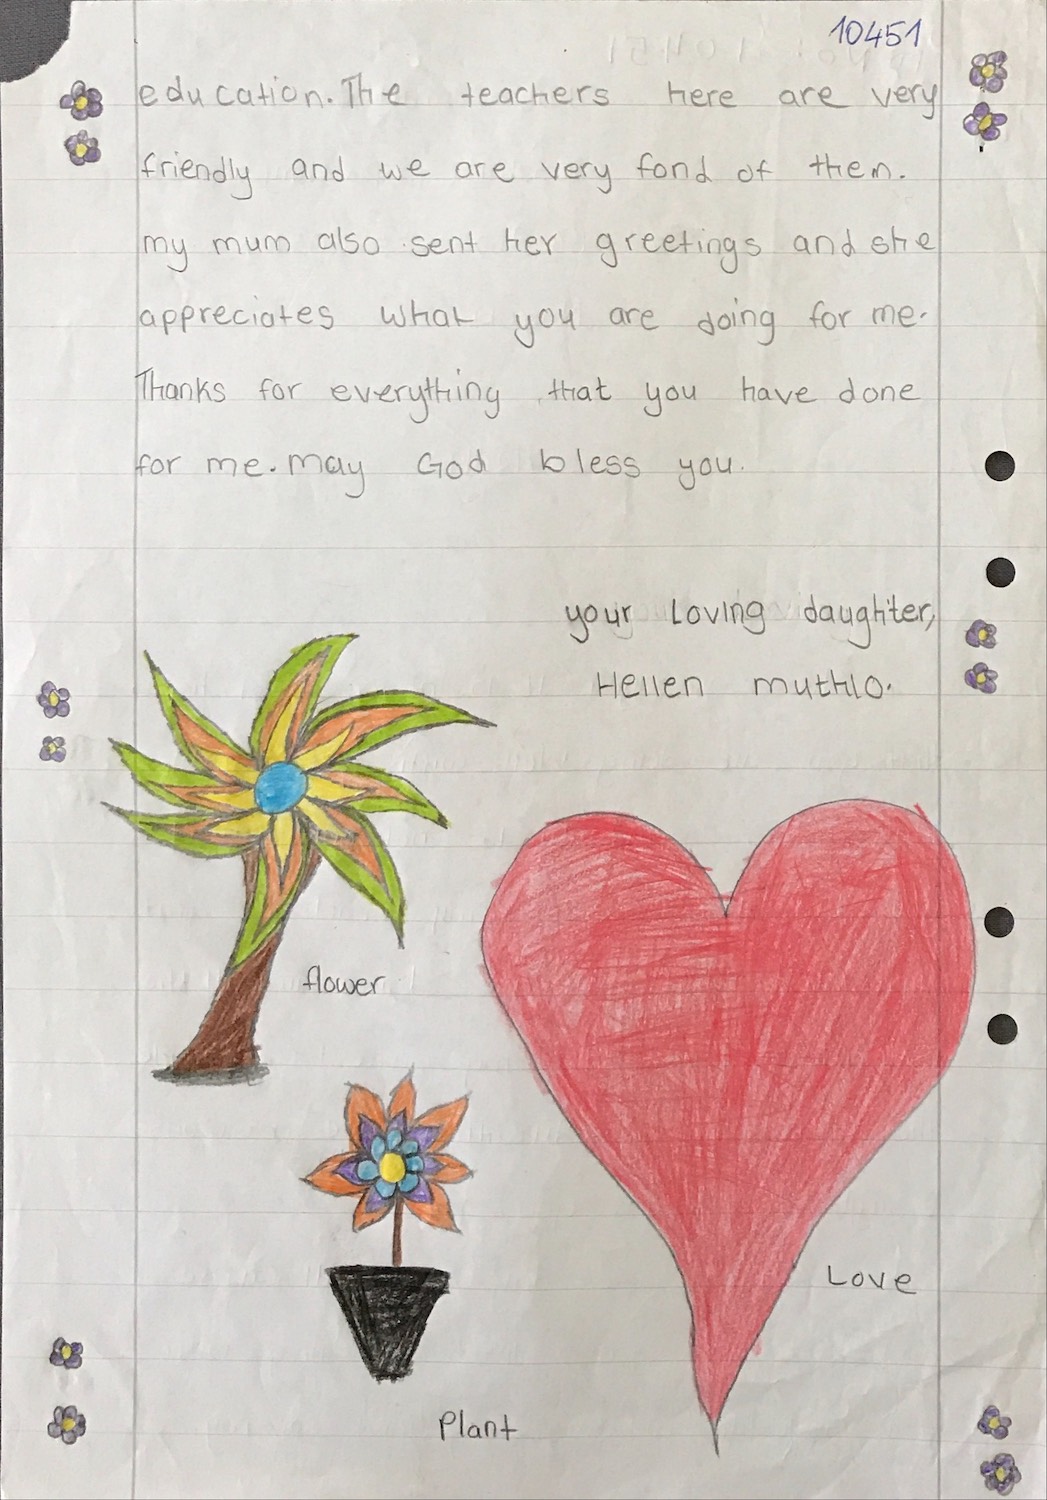 10451
education. The teachers here are very
friendly and we are very fond of them.
my mum also sent her greetings and she
appreciates what you are doing for me.
Thanks for everything that you have done
for me. may God bless you.
your Loving daughter,
Hellen muthlo.
flower
Love
Plant